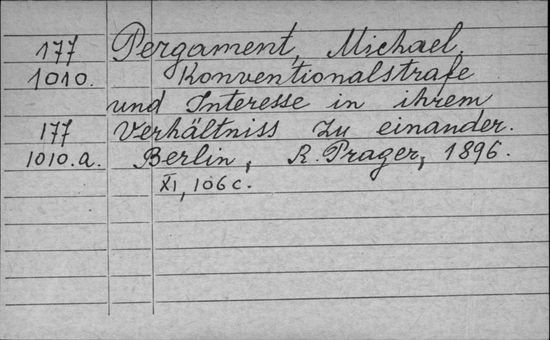 177 Pergament, Michael.
1010. Konventionalstrafe
und Interesse in ihrem
177 Verhältniss zu einander.
1010.a. Berlin, R. Prager, 1896.
XI, 106 c.